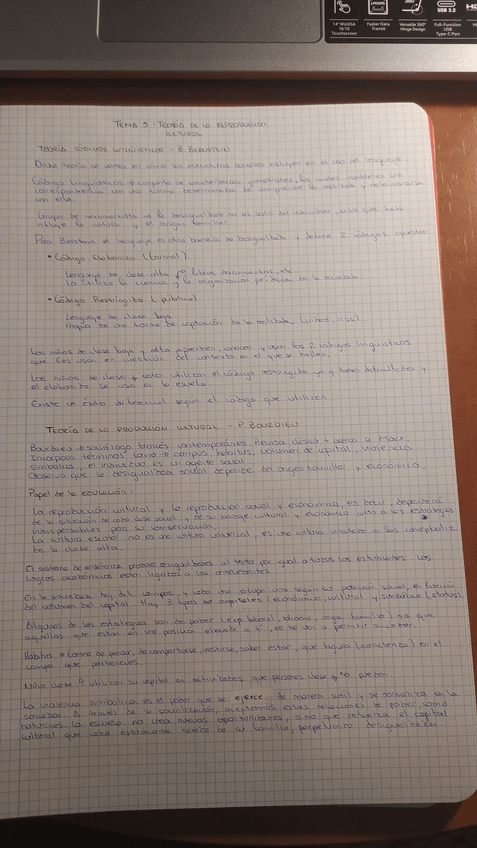 14" WUXGA
16:10
Touchscreen
Faster Data
Transit
Versatile 360°
Hinge Design
USB 3.2
Full-Function
USB
Type-C Port
TEMA 9: TEORÍA DE LA REPRODUCCIÓN
CULTURAL
TEORÍA CÓDIGOS LINGÜÍSTICOS - B. BERNSTEIN
Dicha teoría se centra en cómo las estructuras sociales influyen en el uso del lenguaje.
Códigos lingüísticos → conjunto de características gramaticales, los cuales mantienen una
correspondencia con una forma determinada de comprender la realidad y relacionarla
con ella.
la desigualdad no es solo del individuo, sino que
influye la cultura y el origen familiar.
Para Bernstein el lenguaje es otra barrera de desigualdad y define 2 códigos opuestos:
• Código Elaborado (formal)
Lenguaje de clase alta libros, documentos, etc
Lo utiliza la escuela y la organización
• Código Restringido (pública)
Lenguaje de clase baja
Propio de una forma de captación de la realidad
Los niños de clase baja y alta aprenden, conocen y usan los 2 códigos lingüísticos
que los usan en cuestión del contexto en el que se hallen.
Los niños de clase solo utilizan el código restringido ya q tienen dificultades y
el elaborado se usa en la escuela.
Existe un éxito diferencial según el código que utilicen.
TEORÍA DE LA PRODUCCIÓN CULTURAL - P. BOURDIEU
Bourdieu → sociólogo francés contemporáneo. Revisa clásico + acerca a Marx.
Incorpora términos como → campus, habitus, volumen de capital, violencia
simbólica, el individuo es un agente social.
Observa que la desigualdad social depende del origen familiar y económico.
Papel de la educación:
La reproducción cultural y la reproducción social y económica, es decir, dependerá
de la situación de cada clase social y de su bagaje cultural y económico, junto a las estrategias
indispensables para su conservación.
La cultura escolar no es una cultura universal, es una cultura
de la clase alta.
El sistema de enseñanza produce desigualdades al trata por igual a todos los estudiantes. Los
logros académicos están ligados a los
En la sociedad hay dif. campos, y cada uno ocupa uno según su posición social, en función
del volumen del capital. Hay 3 tipos de capitales: económico, cultural y simbólico (status).
Algunas de las estrategias son de poder (exp laboral, idioma, origen familiar) ya que
aquellos que están en una posición elevada a ti, no te van a permitir acceder.
Habitus → forma de pensar, de comportarse, vestirse, saber estar, que tengas (característica) en el
campo que perteneces.
Niño clase utilizan su capital en actividades que personas clase no pueden.
La violencia simbólica es el poder que se ejerce de manera sutil y se normaliza en la
sociedad. A través de la socialización, aceptamos estas relaciones de poder como
naturales. La escuela no crea nuevas oportunidades, sino que refuerza el capital
cultural que cada estudiante hereda de su familia, perpetuando desigualdades.